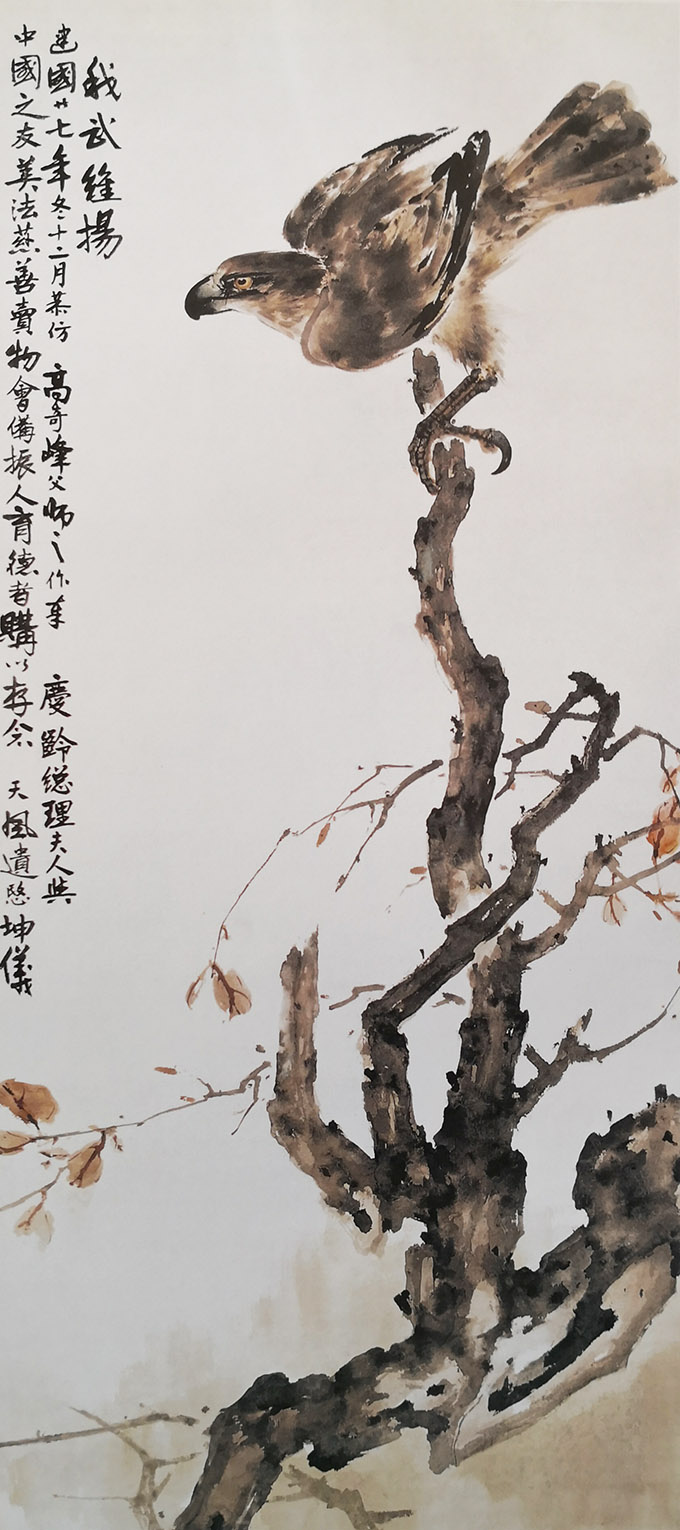 我武維揚
建國廿七年冬十二月恭仿 高奇峰父師之作奉 慶齡總理夫人與
中國之友英法慈善賣物會備振人育德者購以存念 天風遺愍坤儀